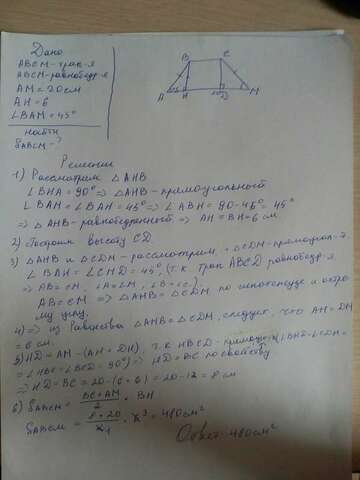 Дано
ABCM - трап-я
ABCM - равнобедр-я
AM = 20 см
AH = 6
∠BAM = 45°
Найти
SABCM - ?
B C
A H M
Решение
1) Рассмотрим △AHB
∠BHA = 90° ⇒ △AHB - прямоугольный
∠BAM = ∠BAH = 45° ⇒ ∠ABH = 90 - 45° = 45°
⇒ △AHB - равнобедренный ⇒ AH = BH = 6 см
2) Построим высоту CD
3) △AHB и △CDM - рассмотрим, △CDM - прямоугол-й
∠BAH = ∠CMD = 45°, (т.к трап ABCD равнобедр-я
⇒ AB = CM, ∠A = ∠M, ∠B = ∠C).
AB = CM ⇒ △AHB = △CDM по гипотенузе и остро
му углу.
4) ⇒ из равенства △AHB = △CDM, следует, что AH = DM
= 6 см.
5) HD = AM - (AH + DM), т.к HBCD - прямоуг
= ∠HBC = ∠BCD = 90°) ⇒ HD = BC по свойству
⇒ HD = BC = 20 - (6 + 6) = 20 - 12 = 8 см
6) SABCM = BC + AM / 2 · BH
SABCM = 8 + 20
= 480 см²
Ответ: 480 см²